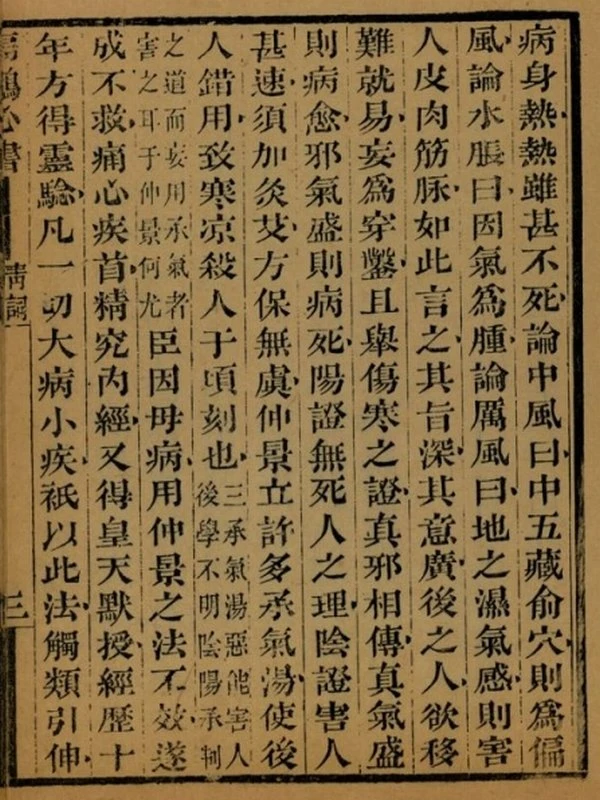 病身熱熱雖甚不死論中風曰中五藏俞穴則爲偏
風論水脹曰因氣爲腫論厲風曰地之濕氣感則害
人皮肉筋脉如此言之其旨深其意廣後之人欲移
難就易妄爲穿鑿且舉傷寒之證真邪相傳真氣盛
則病愈邪氣盛則病死陽證無死人之理陰證害人
甚速須加灸艾方保無虞仲景立許多承氣湯使後
人錯用致寒凉殺人于頃刻也三承氣湯惡能害人
後學不明陰陽承制
之道而妄用承氣者
害之耳于仲景何尤臣因母病用仲景之法不效遂
成不救痛心疾首精究內經又得皇天默授經歷十
年方得靈驗凡一切大病小疾祇以此法觸類引伸
扁鵲心書
詞
三